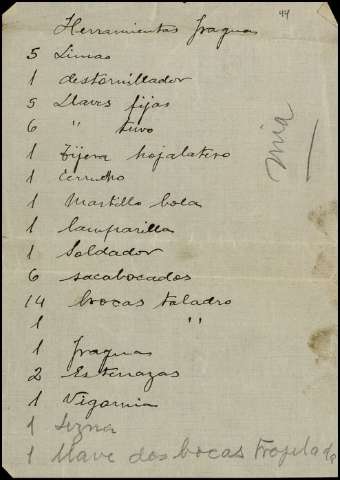 44
Herramientas fraguas
5 Limas
1 destornillador
5 Llaves fijas
6 " tuvo
1 Tijera hojalatero
1 Cerrucho
1 Martillo bola
1 lamparilla
1 Soldador
6 sacabocados
14 brocas taladro
1 "
1 fraguas
2 Estenazas
1 Vigornia
1 Lezna
1 llave dos bocas
mia